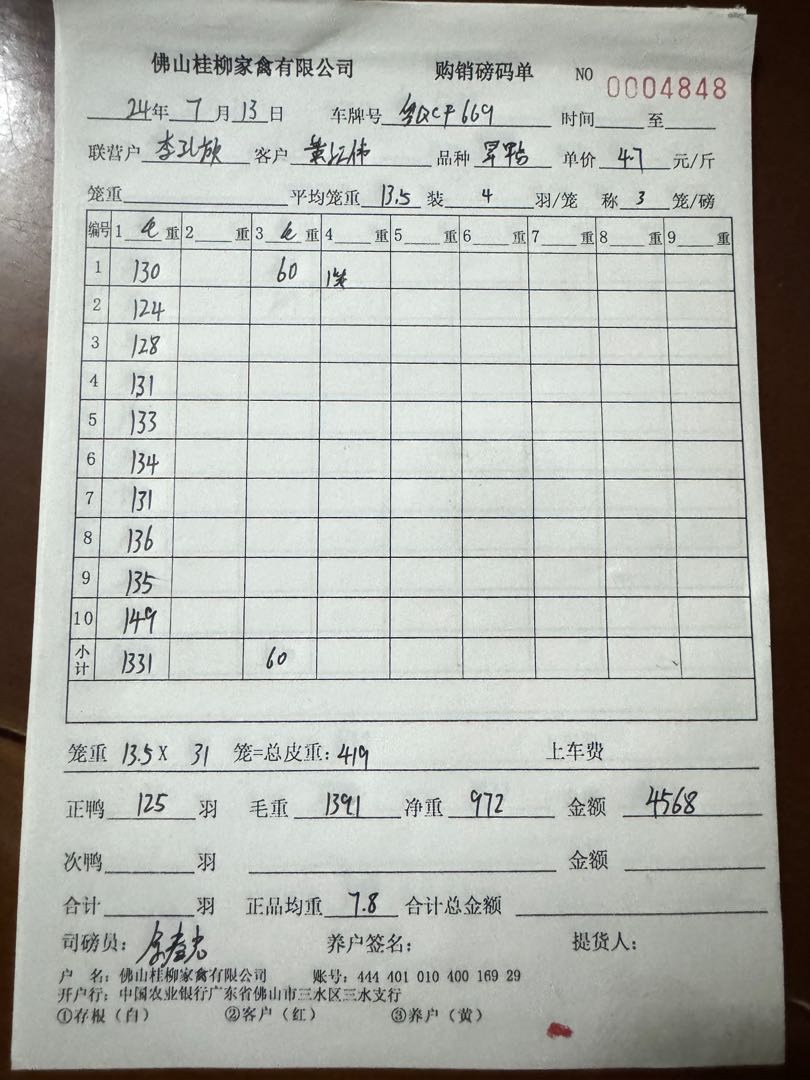 佛山桂柳家禽有限公司 购销磅码单 NO 0004848
24年 7 月 13 日 车牌号 669 时间 至
联营户 李 客户 黄 伟 品种 旱鸭 单价 4.7 元/斤
笼重 平均笼重 13.5 装 4 羽/笼 称 3 笼/磅
编号 1 毛 重 2 重 3 毛 重 4 重 5 重 6 重 7 重 8 重 9 重
1 130 60 1笼
2 124
3 128
4 131
5 133
6 134
7 131
8 136
9 135
10 149
小计 1331 60
笼重 13.5 X 31 笼=总皮重: 419 上车费
正鸭 125 羽 毛重 1391 净重 972 金额 4568
次鸭 羽 金额
合计 羽 正品均重 7.8 合计总金额
司磅员: 养户签名: 提货人:
户 名: 佛山桂柳家禽有限公司 账号: 444 401 010 400 169 29
开户行: 中国农业银行广东省佛山市三水区三水支行
①存根（白） ②客户（红） ③养户（黄）